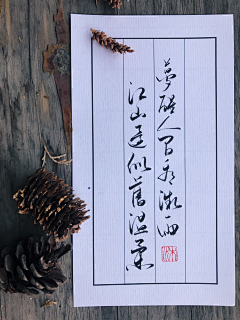 梦醒人间看微雨
江山还似旧温柔